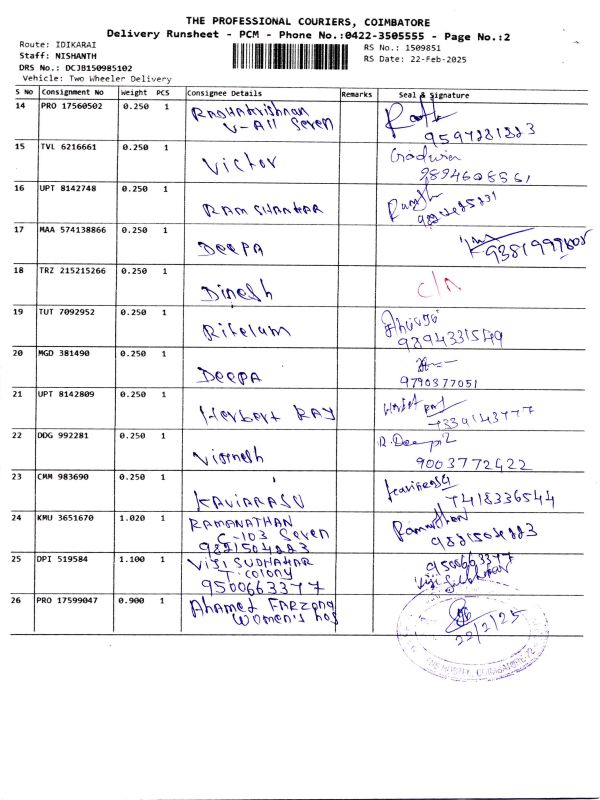 THE PROFESSIONAL COURIERS, COIMBATORE
Delivery Runsheet - PCM - Phone No.:0422-3505555 - Page No.:2
Route: IDIKARAI
Staff: NISHANTH
DRS No.: DCJB150985102
Vehicle: Two Wheeler Delivery
RS No.: 1509851
RS Date: 22-Feb-2025
S No Consignment No Weight PCS Consignee Details Remarks Seal & Signature
14 PRO 17560502 0.250 1 RADHAKrishnan
V-All Seven
9597281223
15 TVL 6216661 0.250 1 Victor Godwin
9894608561
16 UPT 8142748 0.250 1 RAM SHANKAR
17 MAA 574138866 0.250 1 DEEPA
18 TRZ 215215266 0.250 1 Dinesh
19 TUT 7092952 0.250 1 Ritelam
9894331549
20 MGD 381490 0.250 1 DEEPA
9790377051
21 UPT 8142809 0.250 1 Herbert RAY
7339143777
22 DDG 992281 0.250 1 Vignesh
9003772422
23 CMM 983690 0.250 1 KAVIARASU
7418336544
24 KMU 3651670 1.020 1 RAMANATHAN Ramanathan
C-103 Seven
25 DPI 519584 1.100 1 VIJI SUDHAHAR 9500663377
T. colony
9500663377
26 PRO 17599047 0.900 1 Ahamed FARZONA
Women's hos
22/2/25